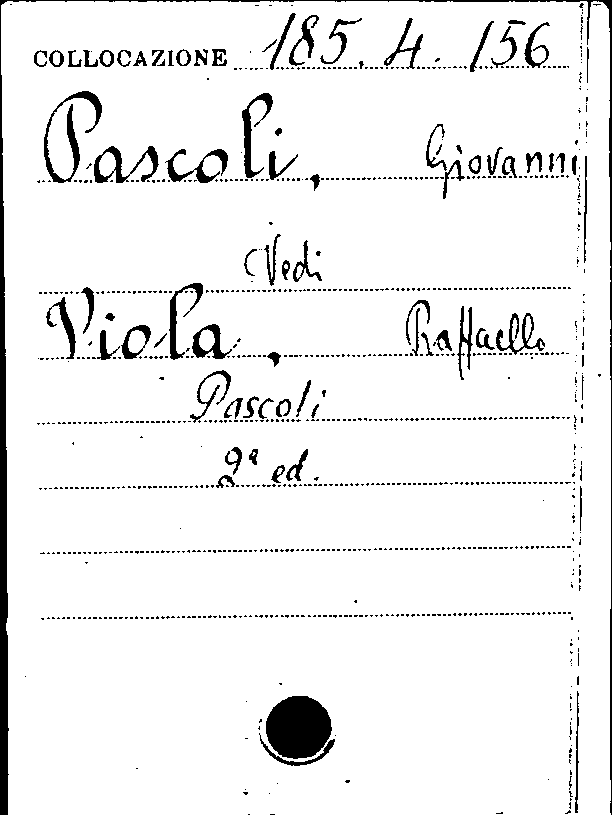 COLLOCAZIONE 185. 4. 156
Pascoli, Giovanni
Vedi
Viola, Raffaello
Pascoli
2ª ed.